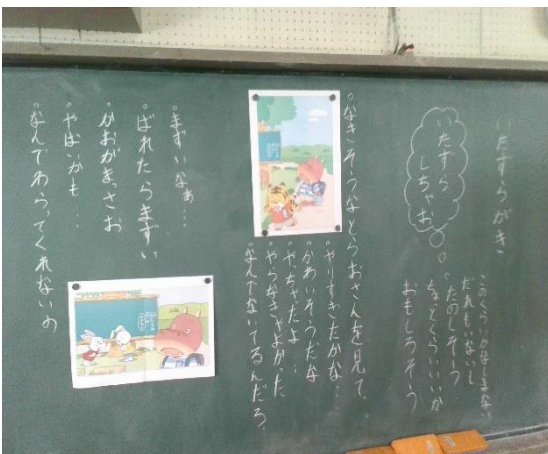 いたずらがき
いたずら
しちゃお
このくらいかまいしまない
だれもいないし
たのしそう
ちょとくらいいいか
おもろそう
なきそうなとらおさんを見て、
やりすぎたかな…
かわいそうだな
やちゃたよ…
やらなきゃよかった
なんでないてるんだろ
まずいなぁ…
ばれたらまずい
かおがまっさお
やばいかも…
なんでわらってくれないの